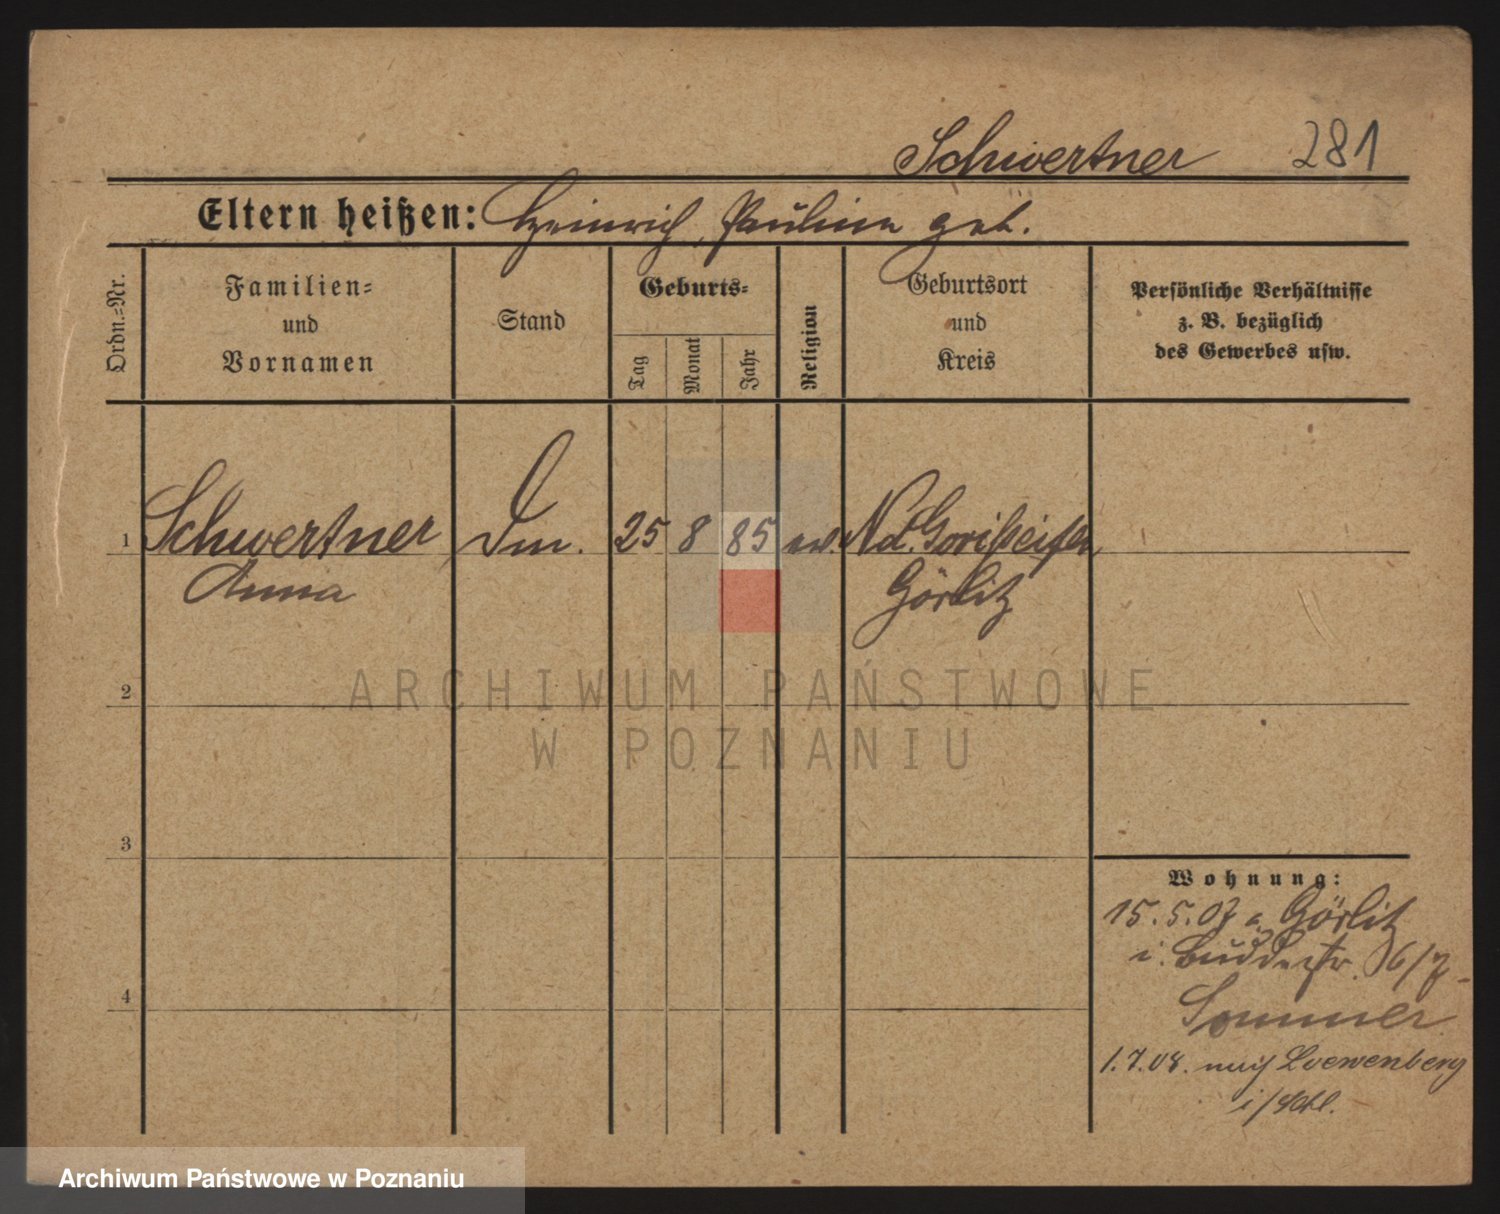 Schwertner 281
Eltern heißen: Heinrich, Pauline geb.
Ordn.-Nr.
Familien-
und
Vornamen
Stand
Geburts-
Tag
Monat
Jahr
Religion
Geburtsort
und
Kreis
Persönliche Verhältnisse
z. B. bezüglich
des Gewerbes usw.
1 Schwertner, 25 8 85 ev. Nd. Görisseifen
Anna Görlitz
2
3
4
Wohnung:
15.5.07 a Görlitz
i. Buddestr. 6/7
Sommer
1.7.08. nach Loewenberg
i/Schl.
ARCHIWUM PAŃSTWOWE
W POZNANIU
Archiwum Państwowe w Poznaniu